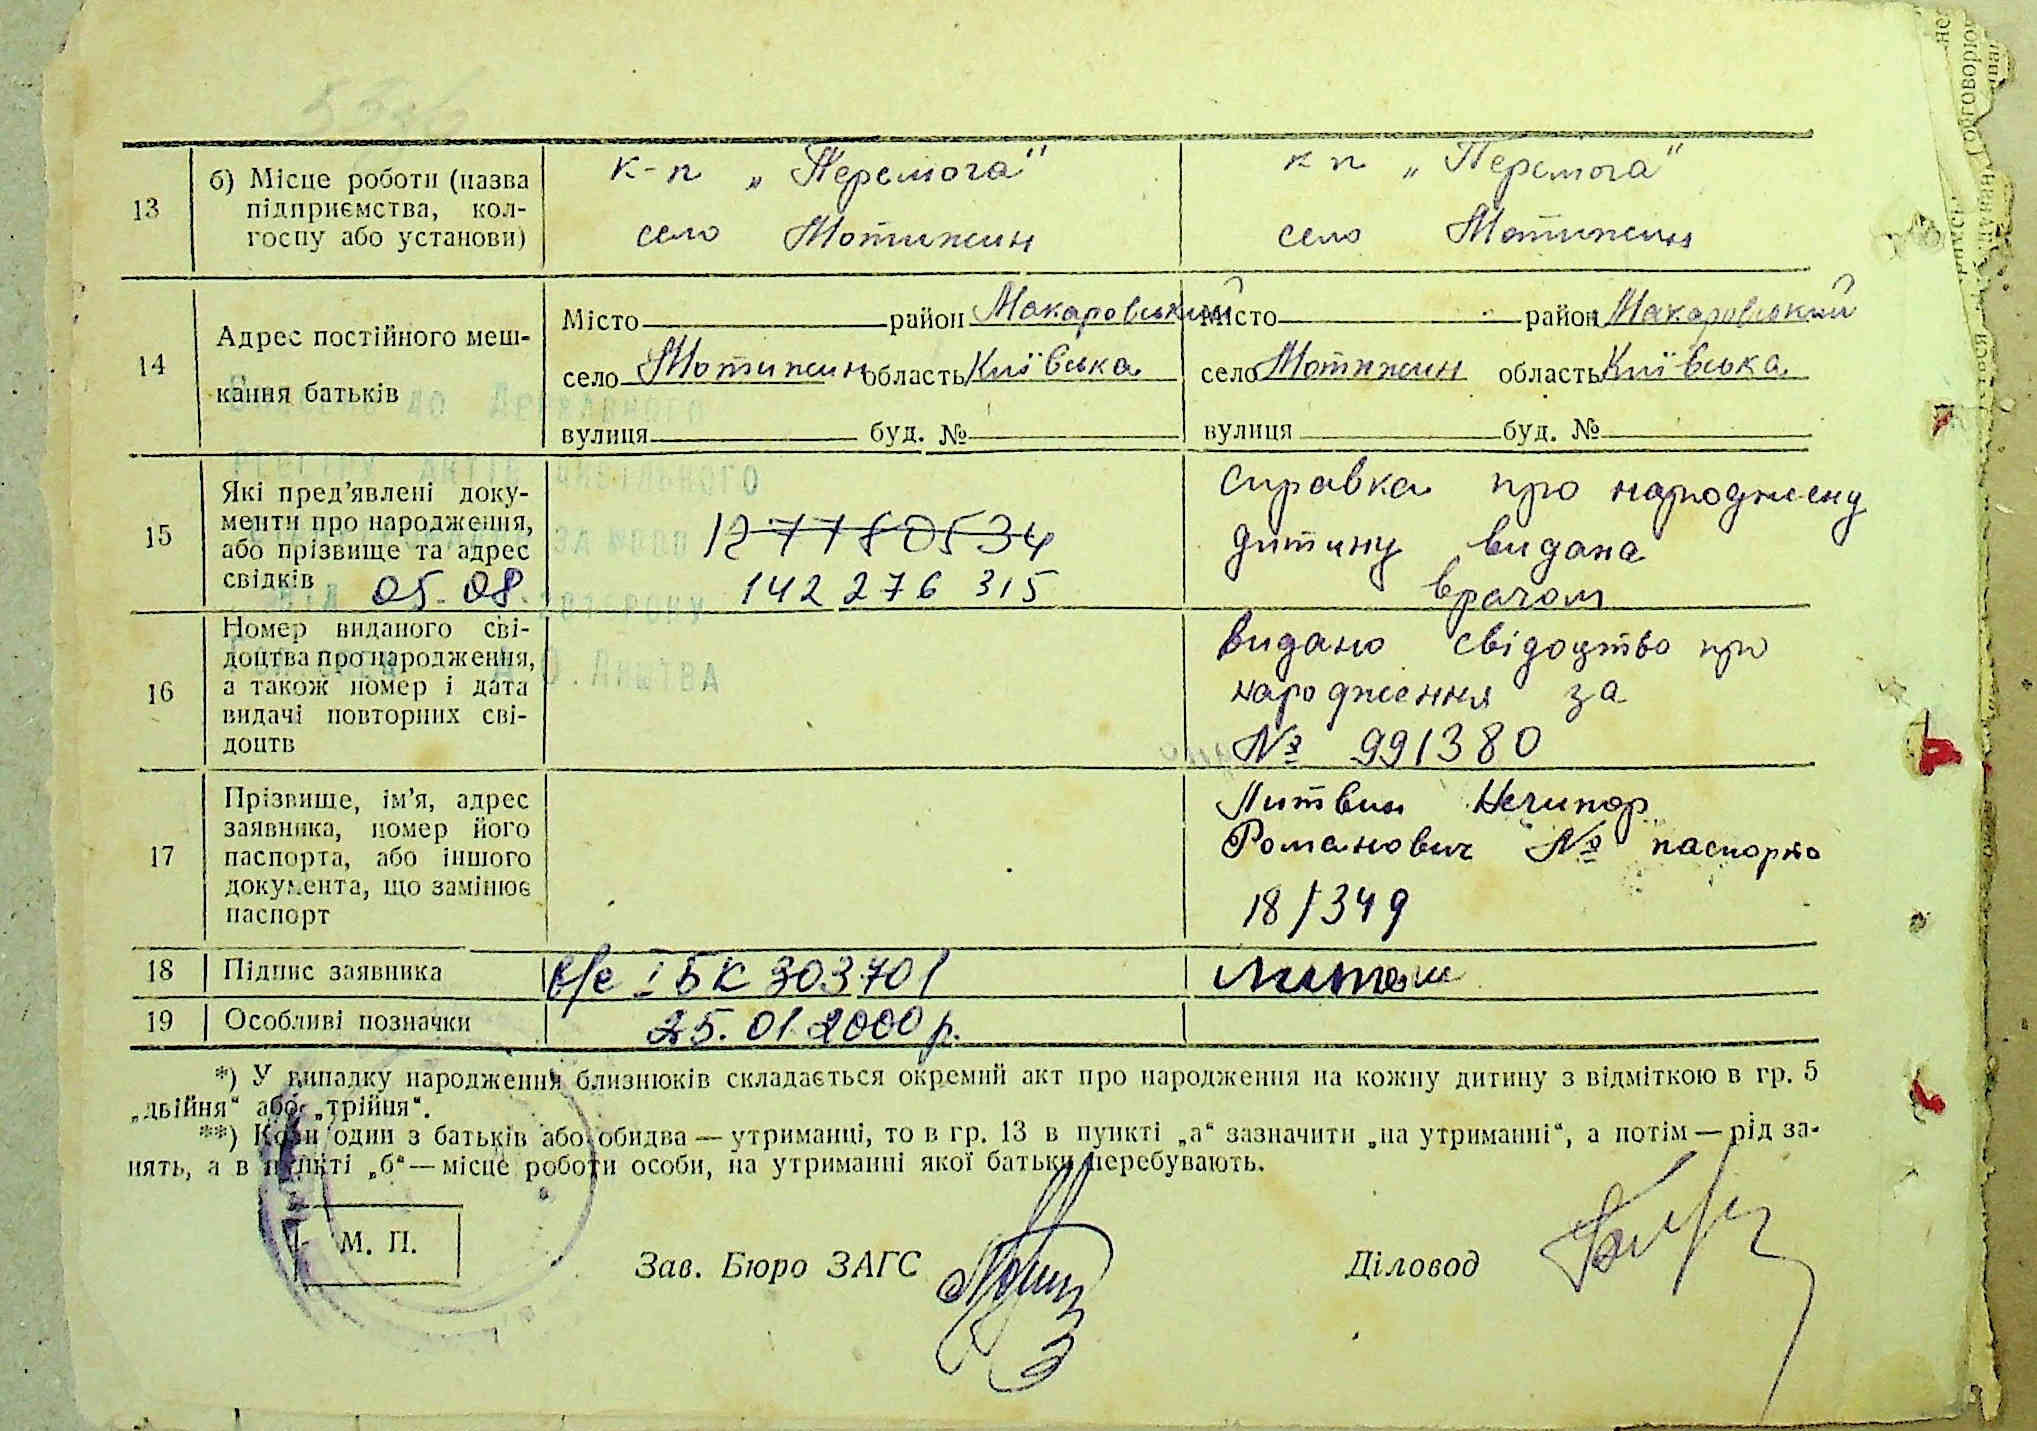 13
б) Місце роботи (назва
підприємства, кол-
госпу або установи)
к-п „Перемога"
село Мотижин
к п „Перемога"
село Мотижин
14
Адрес постійного меш-
кання батьків
Місто район Макаровський
село Мотижин область Київська
вулиця буд. №
Місто район Макаровський
село Мотижин область Київська
вулиця буд. №
15
Які пред'явлені доку-
менти про народження,
або прізвище та адрес
свідків 05.08.
1277180534
142 276 315
справка про народжену
дитину видана
врачом
16
Номер виданого сві-
доцтва про народження,
а також номер і дата
видачі повторних сві-
доцтв
видано свідоцтво про
народження за
№ 991380
17
Прізвище, ім'я, адрес
заявника, номер його
паспорта, або іншого
документа, що замінює
паспорт
Литвин Нечипор
Романович № паспорта
18/349
18
Підпис заявника
в/с І БК 303701
19
Особливі позначки
25.01.2000 р.
*) У випадку народження близнюків складається окремий акт про народження на кожну дитину з відміткою в гр. 5
„двійня" або „трійня".
**) Коли один з батьків або обидва — утриманці, то в гр. 13 в пункті „а" зазначити „на утриманні", а потім — рід за-
нять, а в пункті „б" — місце роботи особи, на утриманні якої батьки перебувають.
М. П.
Зав. Бюро ЗАГС
Діловод